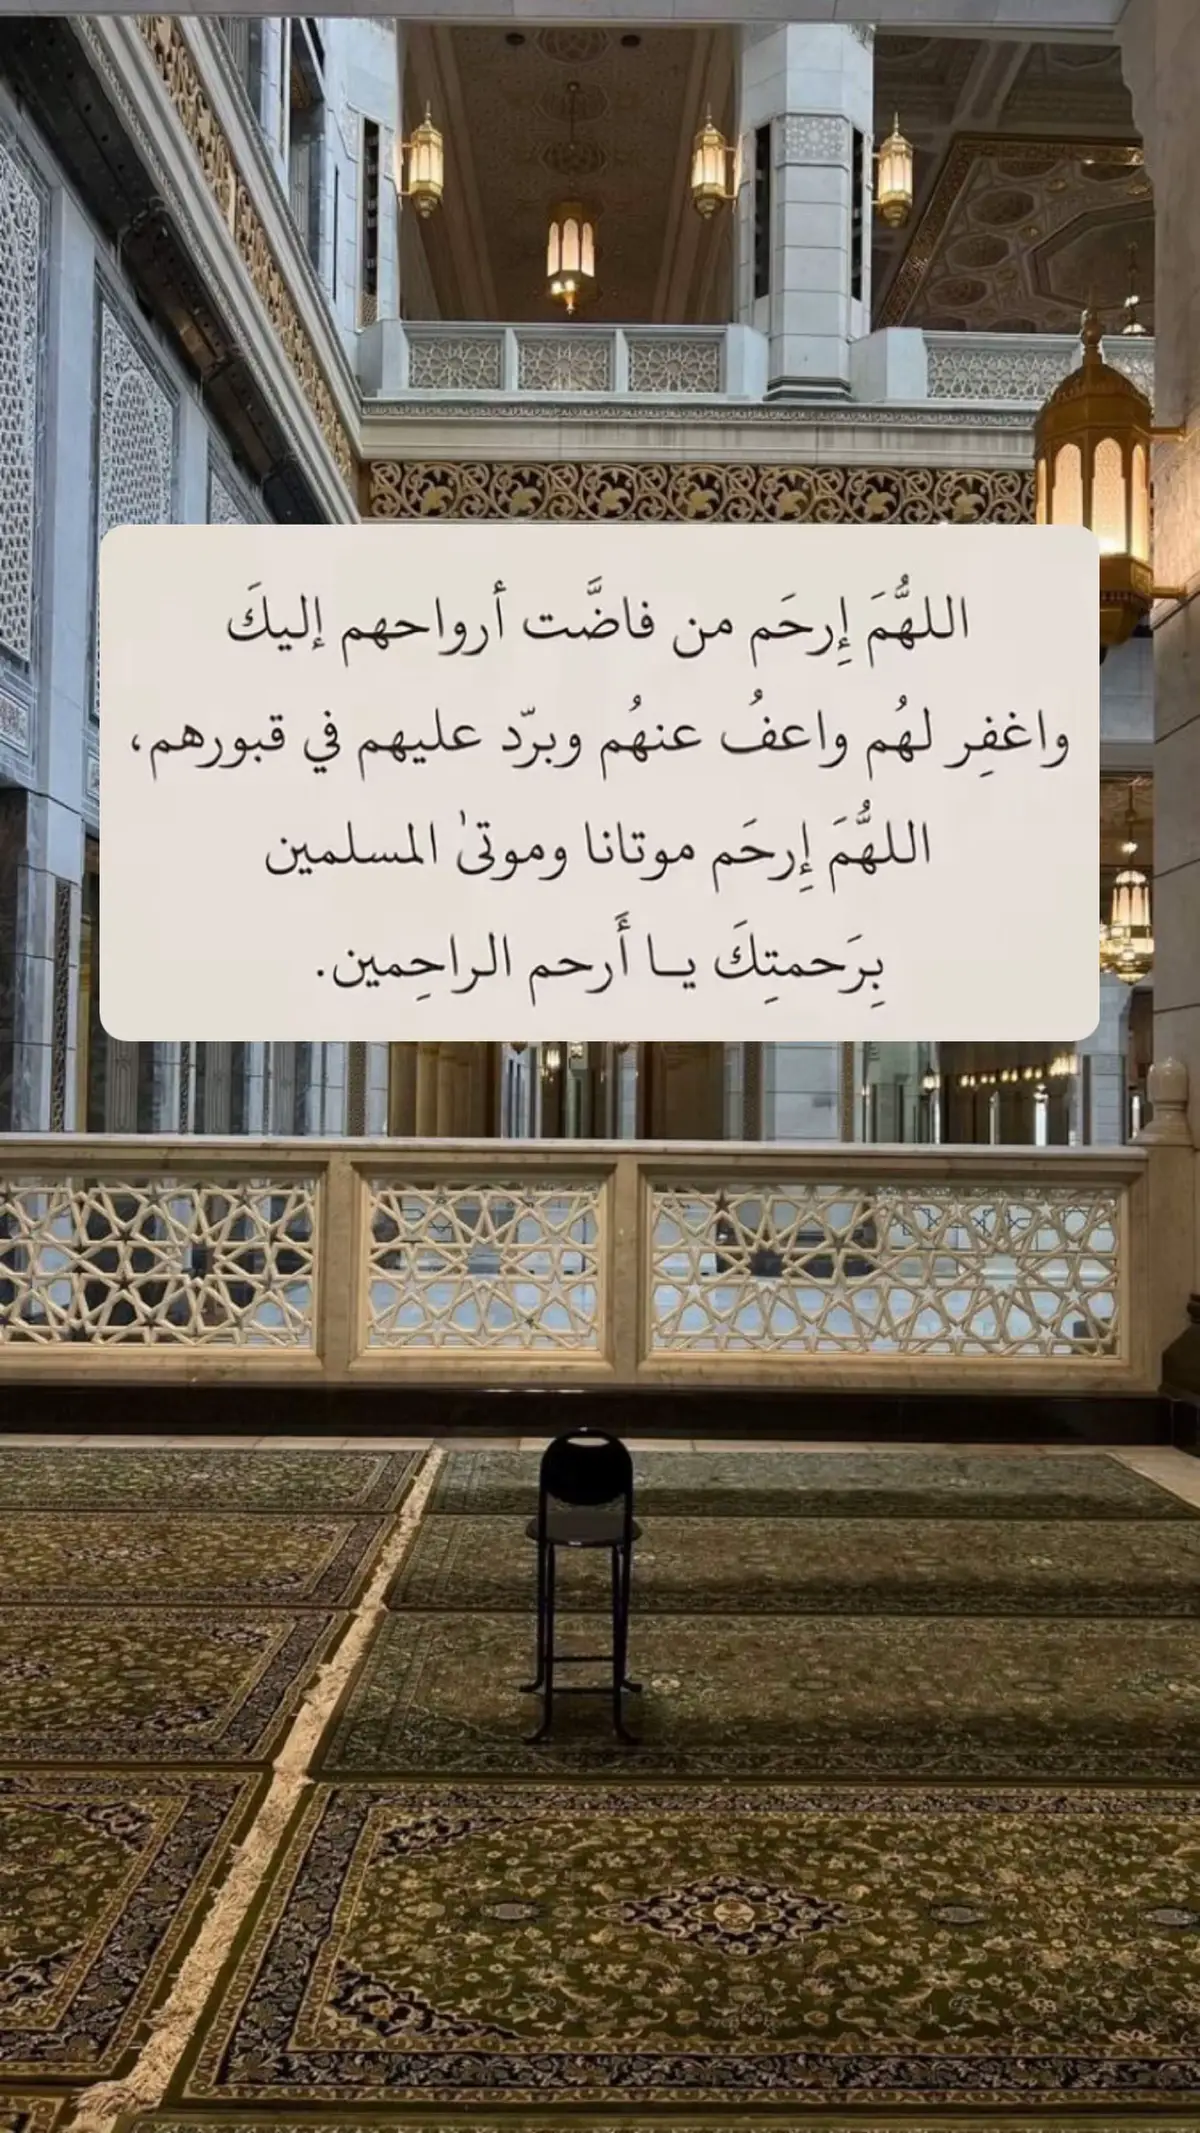 اللهُّمَ إِرحَم من فاضَّت أرواحهم إليكَ
واغفِر لهُم واعفُ عنهُم وبرّد عليهم في قبورهم،
اللهُّمَ إِرحَم موتانا وموتىٰ المسلمين
بِرَحمتِكَ يــا أَرحم الراحِمين.